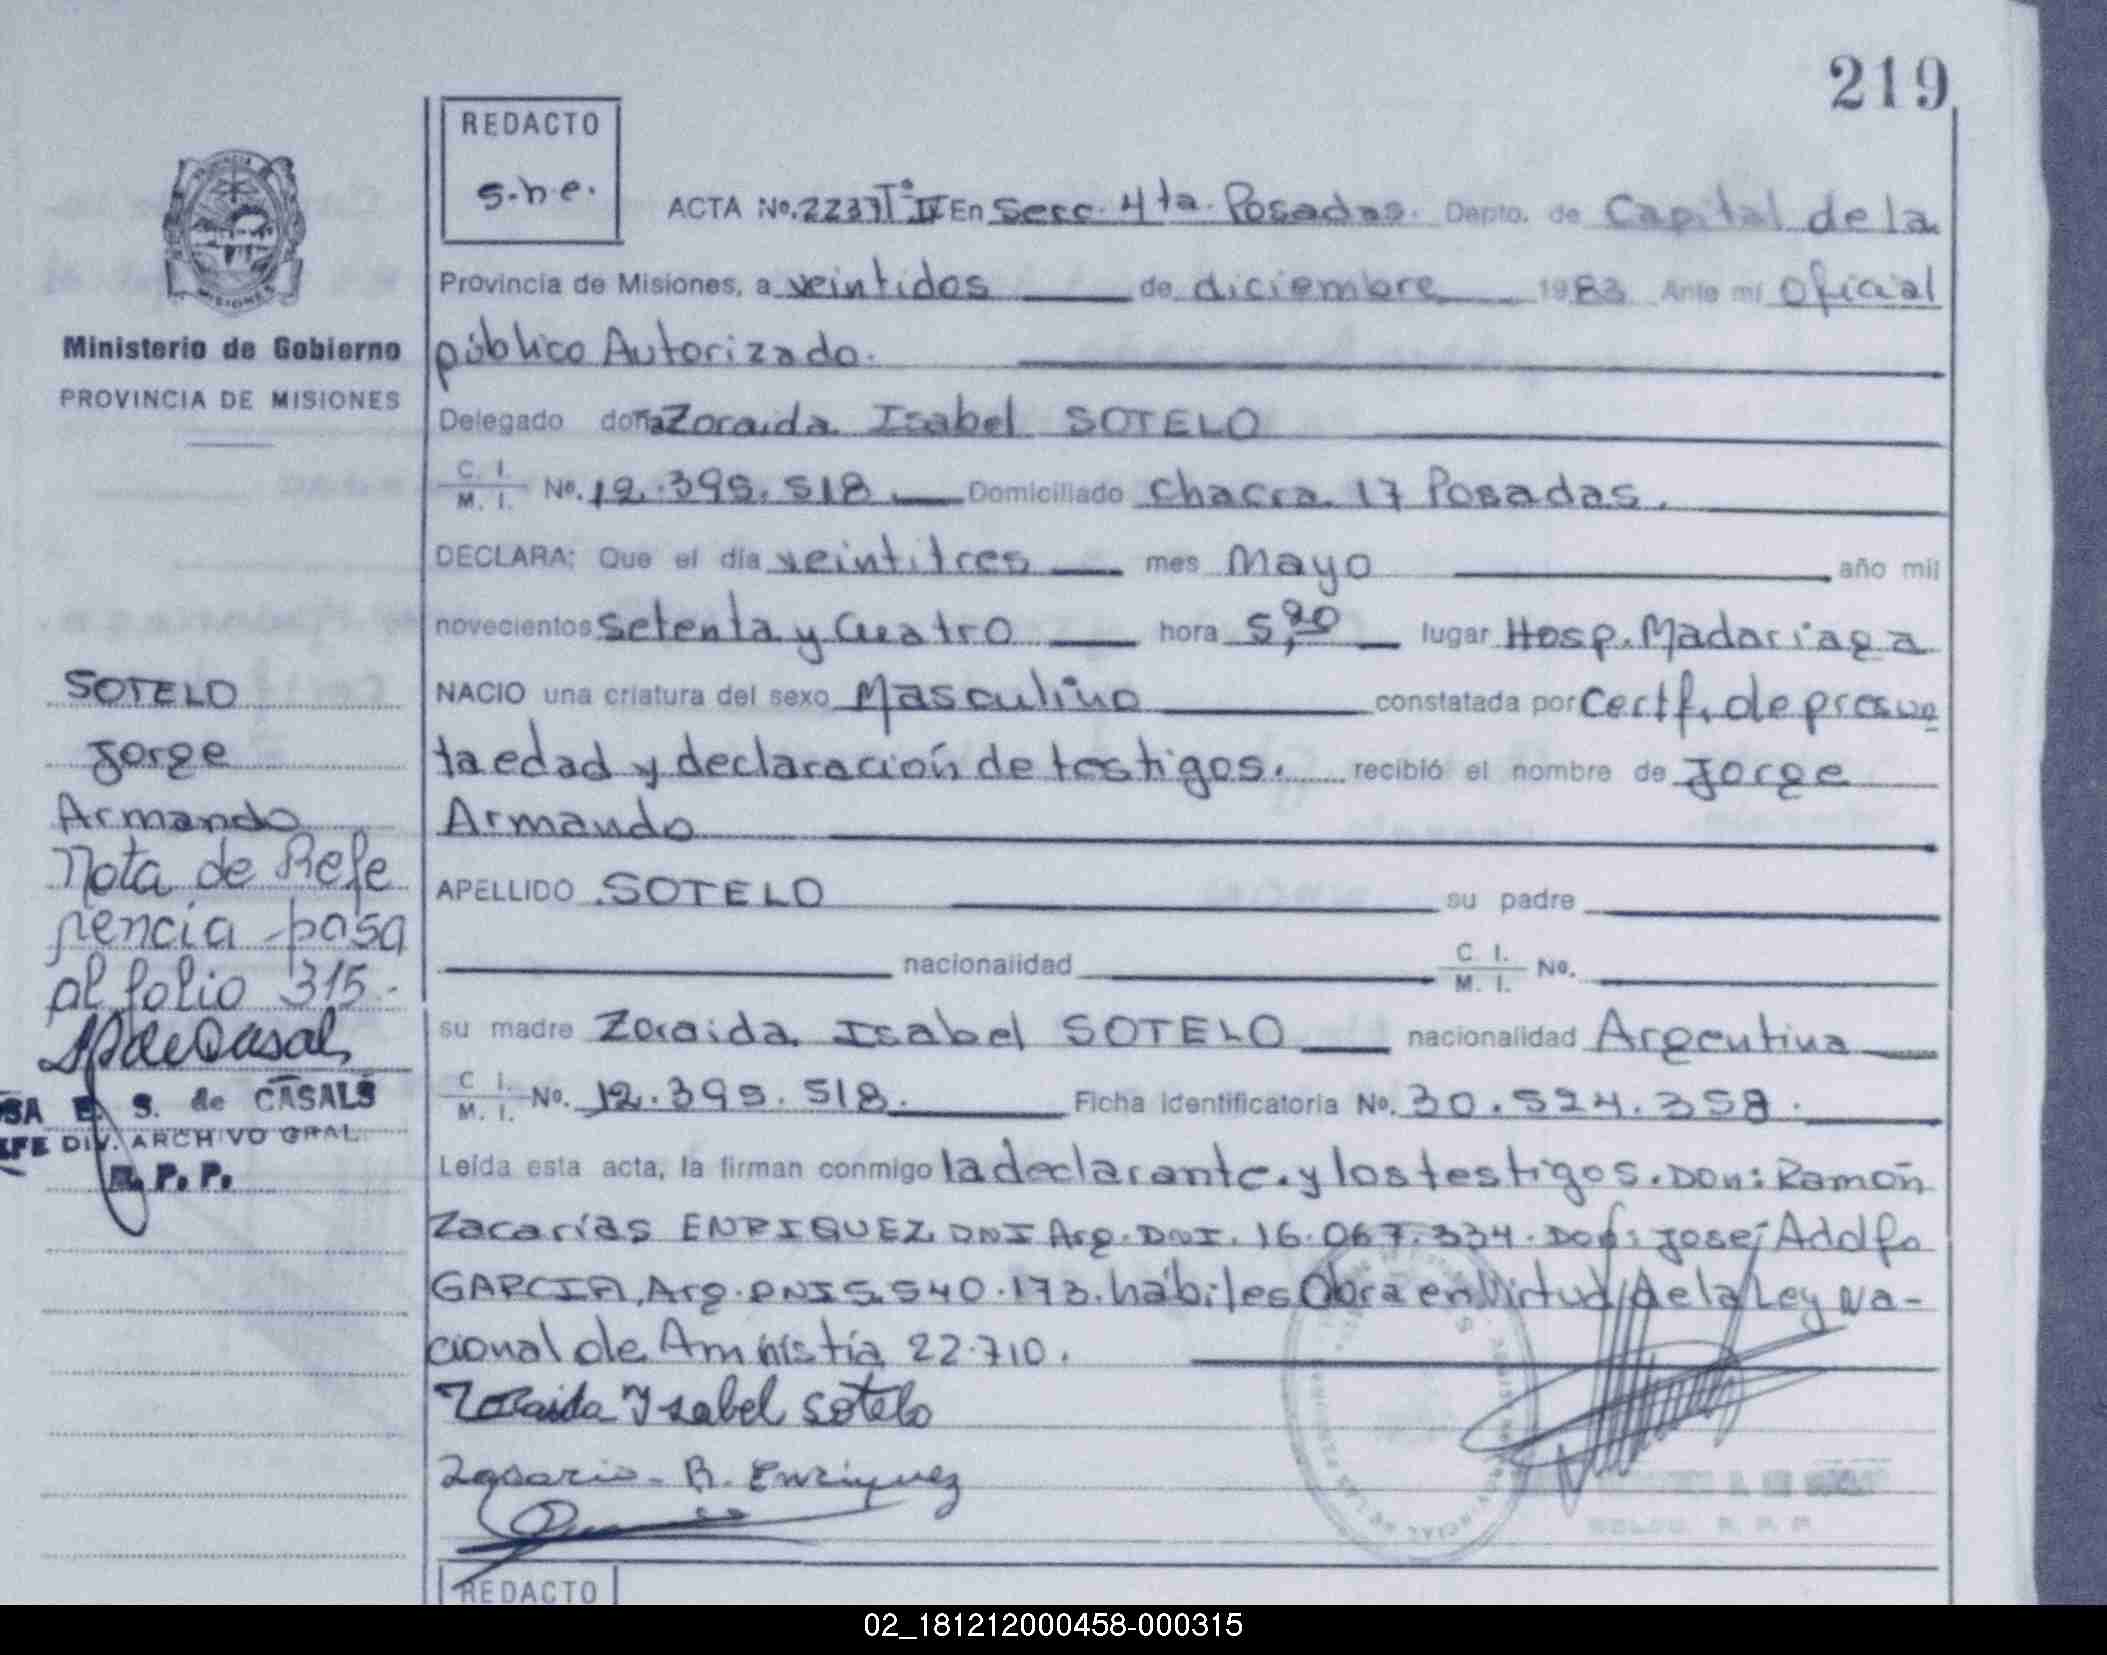 219
REDACTO
s.h.e.
ACTA No. 2237 Tº IV En Secc. 4ta. Posadas. Depto. de Capital de la
Provincia de Misiones, a veintidos de diciembre 1983 Ante mí Oficial
público Autorizado.
Delegado doña Zoraida Isabel SOTELO
C. I. / M. I. No. 12.395.518 Domiciliado Chacra 17 Posadas.
DECLARA: Que el día veintitres mes Mayo año mil
novecientos setenta y cuatro hora 5,20 lugar Hosp. Madariaga
NACIO una criatura del sexo Masculino constatada por Certf. de presun
ta edad y declaración de testigos. recibió el nombre de Jorge
Armando
APELLIDO SOTELO su padre
nacionalidad C. I. / M. I. No.
su madre Zoraida Isabel SOTELO nacionalidad Argentina
C. I. / M. I. No. 12.395.518. Ficha identificatoria No. 30.524.358.
Leída esta acta, la firman conmigo la declarante. y los testigos. Don: Ramón
Zacarías ENRIQUEZ DNI Arg. DNI. 16.067.334. Don: José Adolfo
GARCIA, Arg. DNI 5.540.173. hábiles Obra en Virtud de la Ley Na-
cional de Amnistía 22.710.
Zoraida Ysabel Sotelo
R. Enriquez
REDACTO
PROVINCIA DE MISIONES
Ministerio de Gobierno
PROVINCIA DE MISIONES
SOTELO
Jorge
Armando
Nota de Refe
rencia pasa
al folio 315.-
SA E. S. de CASALS
EFE DIV. ARCHIVO GRAL.
R. P. P.
02_181212000458-000315